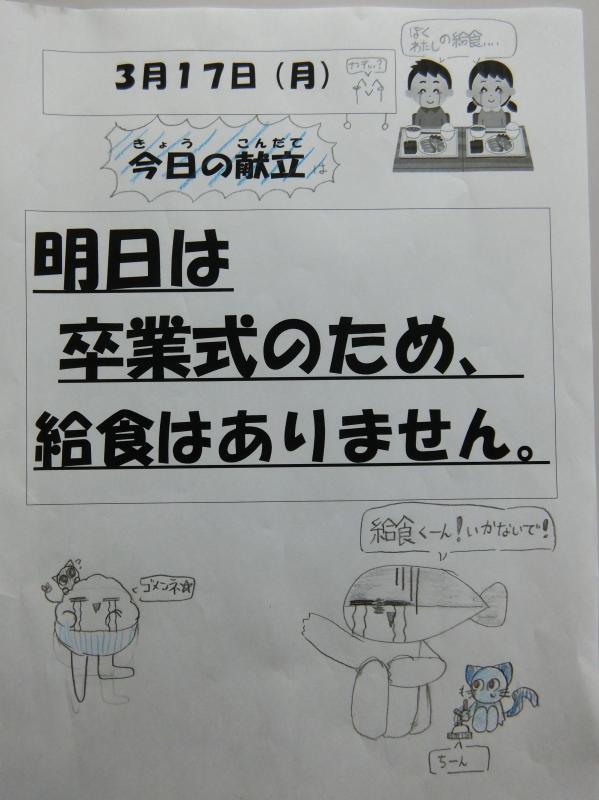 3月17日（月）
ナゼぃ？
ぼく
わたしの給食....
きょう こんだて
今日の献立は
明日は
卒業式のため、
給食はありません。
給食くーん！いかないで！
？
ゴメンネ☆
ちーん